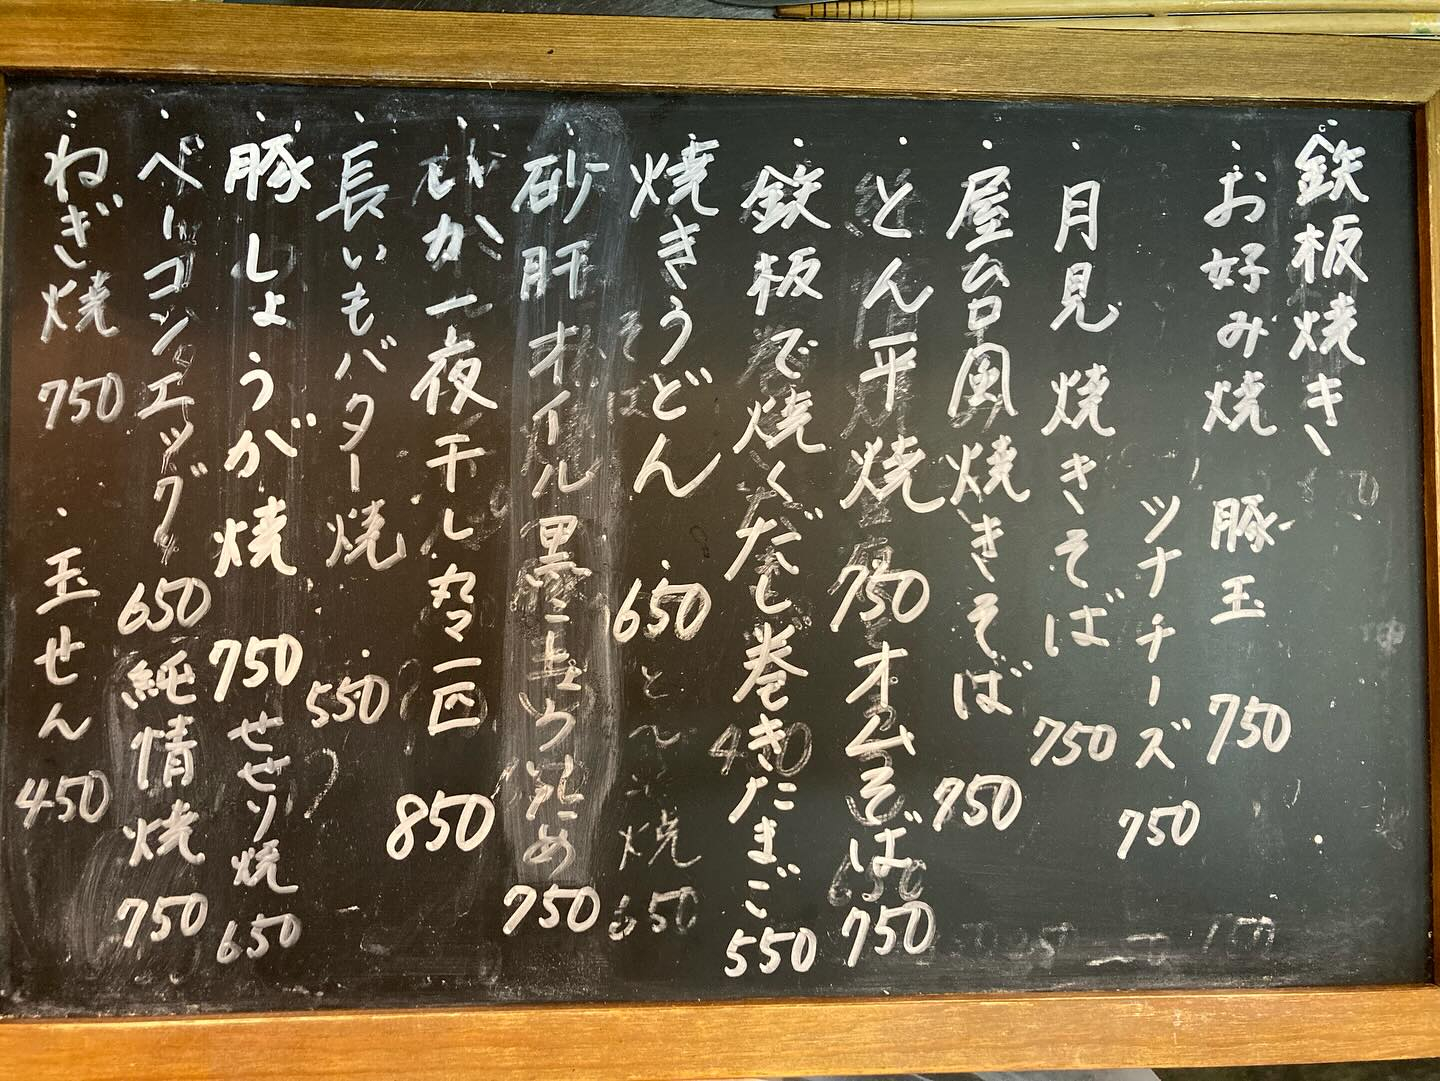 鉄板焼き
・お好み焼 豚玉 750
ツナチーズ 750
・月見焼きそば 750
・屋台風焼きそば 750
・とん平焼 750 オムそば 750
・鉄板で焼くだし巻きたまご 550
・焼きうどん 650
焼 650
・砂肝オイル黒こしょう炒め 750
・いか一夜干し丸々一匹 850
・長いもバター焼 550
・豚しょうが焼 750 せせり焼 650
・ベーコンエッグ 650 純情焼 750
・ねぎ焼 750 ・玉せん 450